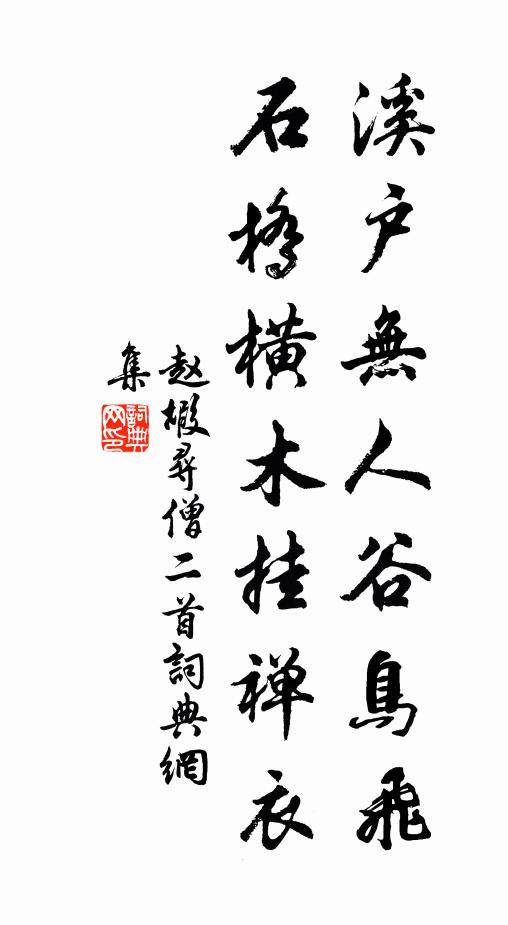 溪户無人谷鳥飛
石橋橫木挂禅衣
赵嘏尋僧二首詞典網
集
詞典网印